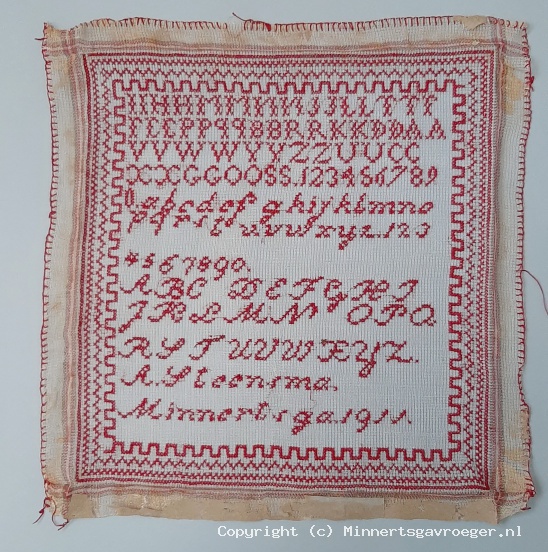 I I H D I M M N M J J L I T T T
I L E F P P 9 9 8 B R R K K D D A A
V V W W V Y Z Z U U C C
G G O O S S . 1 2 3 4 5 6 7 8 9
a b c d e f g h i j k l m n o
p q r s t u v w x y z . 1 2 3
4 5 6 7 8 9 0 .
A B C D E F G H I
J K L M N O P Q
R S T U V W X Y Z .
A Steensma.
Minnertsga 1911
Copyright (c) Minnertsgavroeger.nl